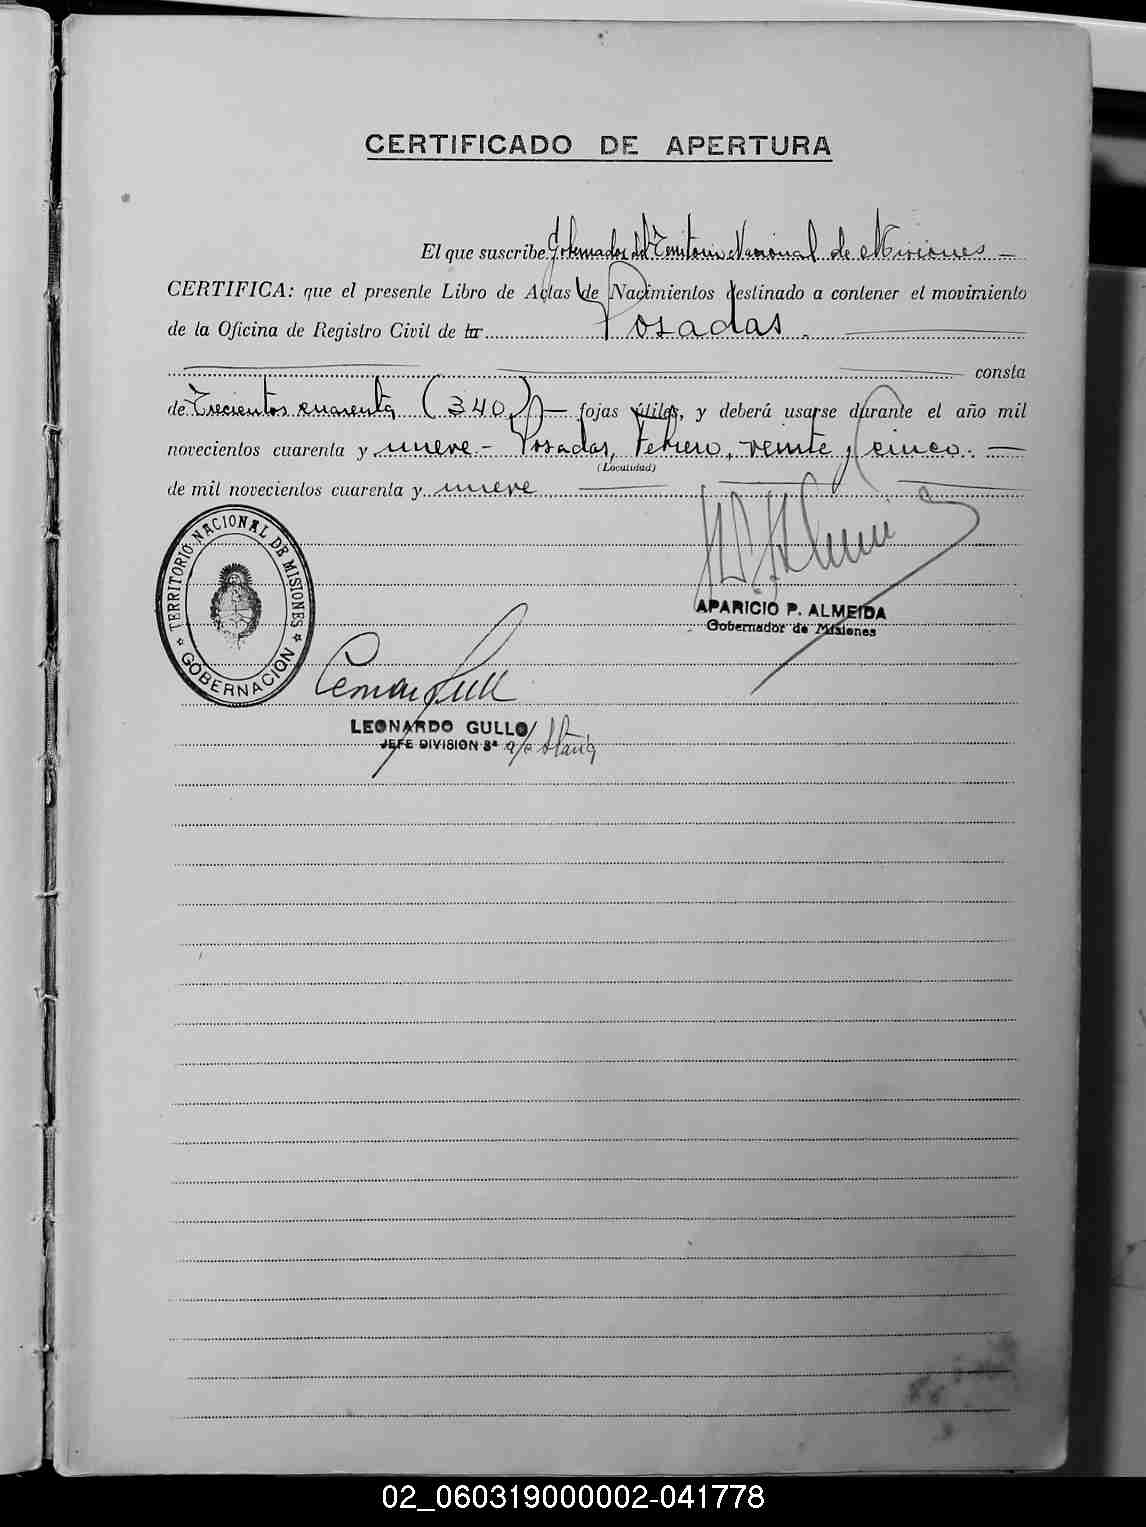 CERTIFICADO DE APERTURA
El que suscribe Gobernador del Territorio Nacional de Misiones
CERTIFICA: que el presente Libro de Actas de Nacimientos destinado a contener el movimiento
de la Oficina de Registro Civil de la Posadas.
consta
de Trecientos cuarenta (340) fojas útiles, y deberá usarse durante el año mil
novecientos cuarenta y nueve - Posadas, Febrero, veinte y cinco.
(Localidad)
de mil novecientos cuarenta y nueve
TERRITORIO NACIONAL DE MISIONES
GOBERNACION
APARICIO P. ALMEIDA
Gobernador de Misiones
LEONARDO GULLO
JEFE DIVISION 3ª a/c
02_060319000002-041778